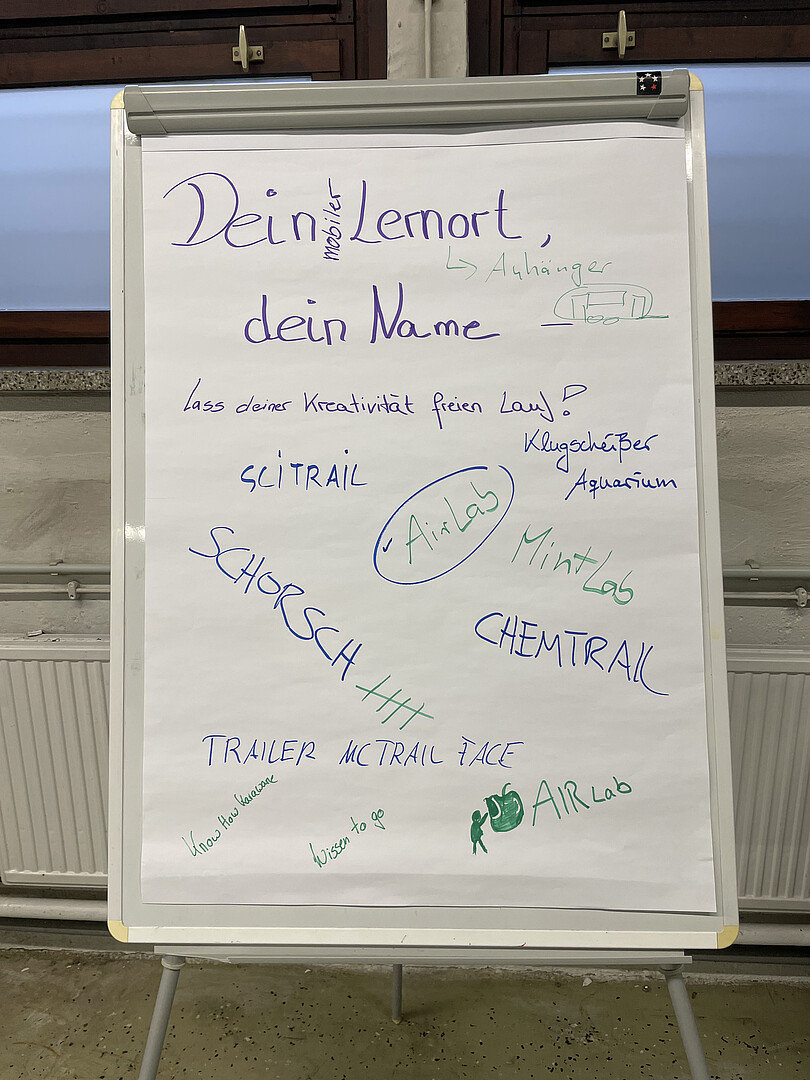 Dein mobiler Lernort,
↳ Anhänger
dein Name
Lass deiner Kreativität freien Lauf!
Klugscheißer
Aquarium
SCITRAIL
✓ AirLab
MintLab
SCHORSCH
CHEMTRAIL
TRAILER MCTRAIL FACE
Know How Karawane
Wissen to go
AIRLab